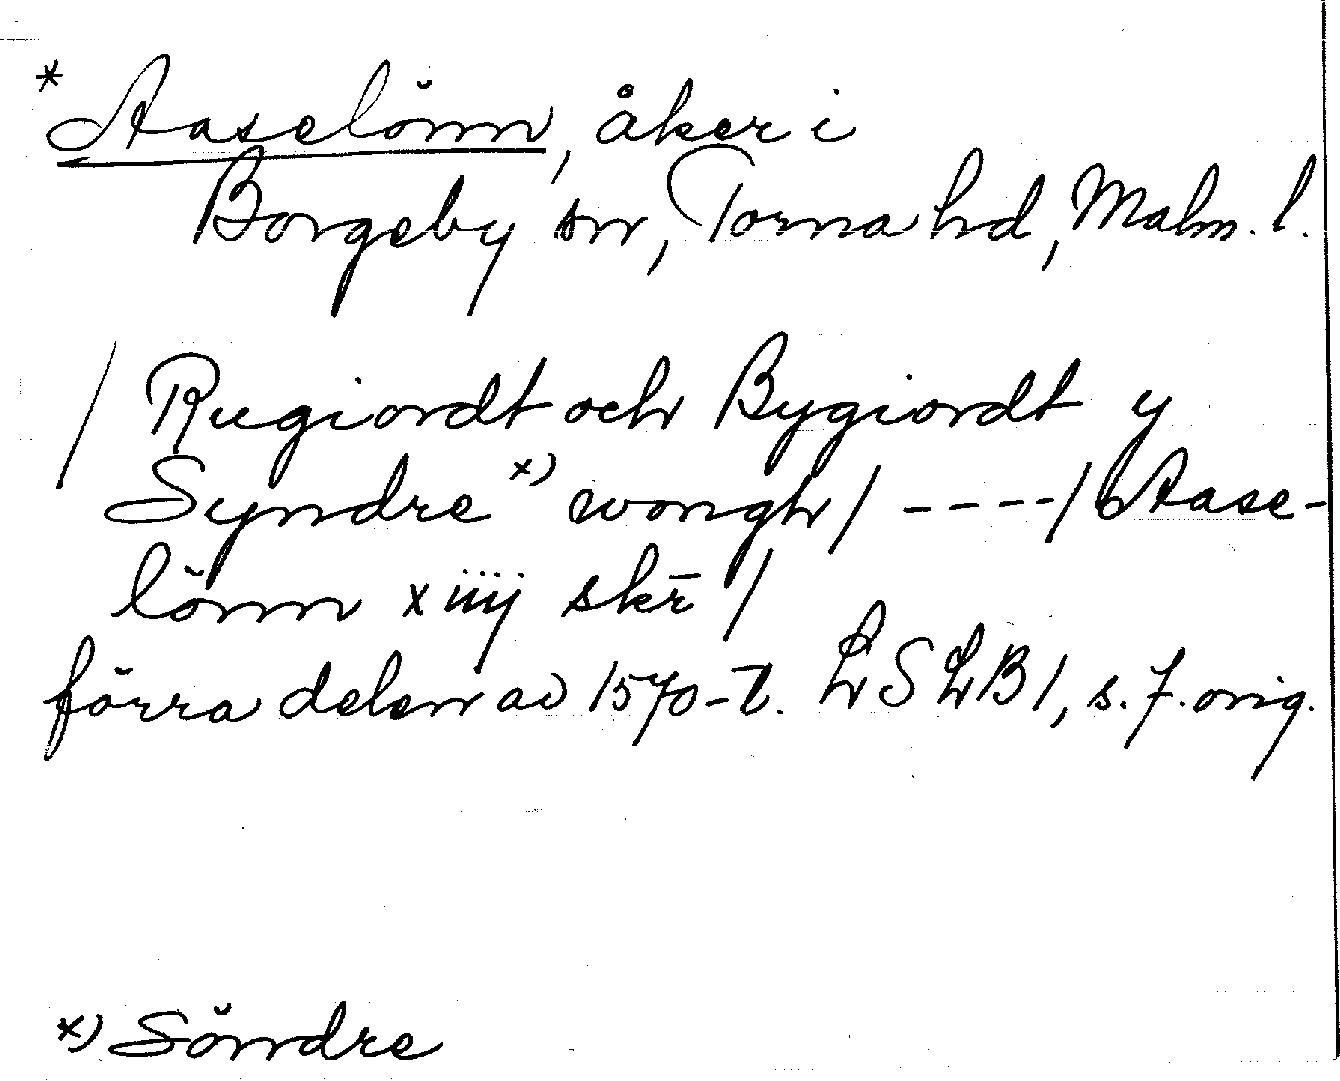 * Aaselönn, åker i
Borgeby sn, Torna hd, Malm. l.
/ Rugiordt och Bygiordt y
Syndre x) wongh / ---- / Aase-
lönn xiiij skr̄ /
förra delen av 1570-t. LSLB1, s. 7. orig.
x) Söndre